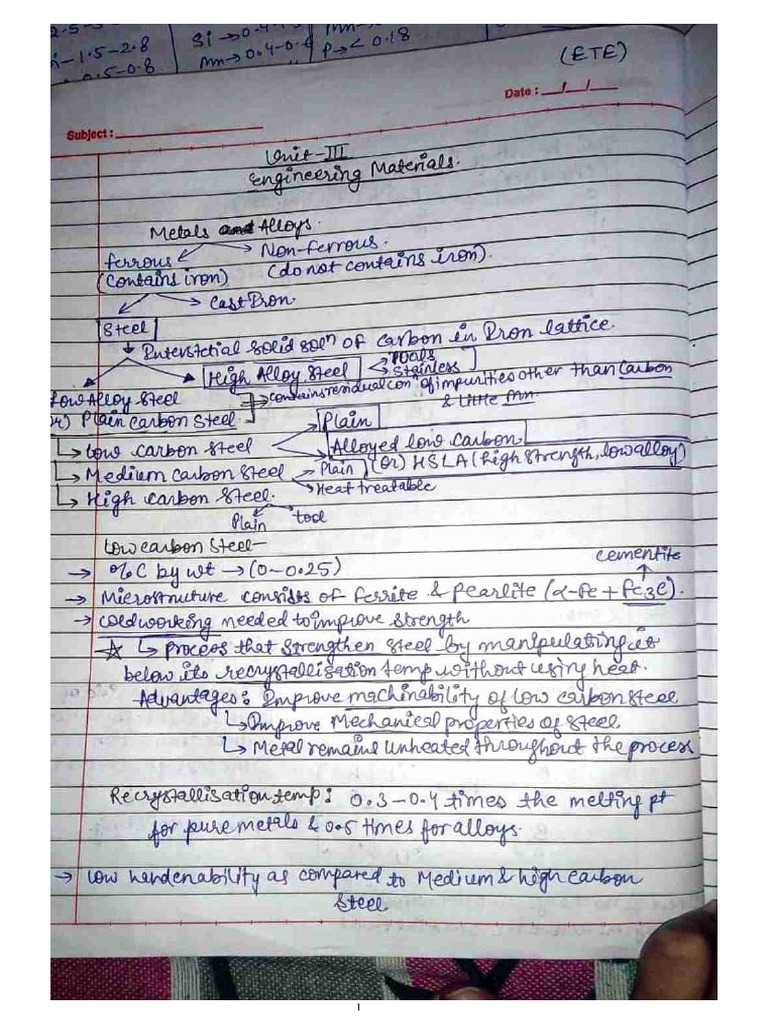 2.5-3
Si→0.4-1.
n-1.5-2.8
Mn→0.4-0.6
P→< 0.18
0.5-0.8
(ETE)
Date : __/__/__
Subject :
Unit-III
Engineering Materials.
Metals and Alloys.
ferrous
Non-ferrous.
(Contains iron)
(do not contains iron).
Cast Iron.
Steel
Interstetial solid solⁿ of carbon in Iron lattice.
High Alloy Steel
Tools
Stainless
Low Alloy Steel
contains residual conⁿ of impurities other than Carbon
& Little Mn.
or) Plain Carbon Steel
Plain
Low carbon steel
Alloyed low carbon
(or) HSLA (high strength, low alloy)
Medium Carbon Steel
Plain
Heat treatable
High carbon steel.
Plain
tool
Low carbon Steel-
→ %C by wt → (0-0.25)
cementite
→ Microstruture consists of ferrite & Pearlite (α-Fe + Fe3C).
→ coldworking needed to improve strength
☆ ↳ process that strengthen steel by manipulating it
below its recrystallisation temp without using heat.
Advantages: Improve machinability of low carbon steel
↳ Improve Mechanical properties of Steel
↳ Metal remains unheated throughout the process
Recrystallisation temp: 0.3-0.4 times the melting pt
for pure metals & 0.5 times for alloys.
→ Low hardenability as compared to Medium & high Carbon
Steel
1